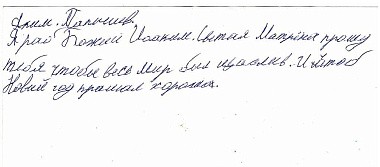 Я раб Божий Иоаким. Святая Матрона прошу
тебя чтобы весь мир был щаслив. И чтоб
Новый год прошол хорошо.